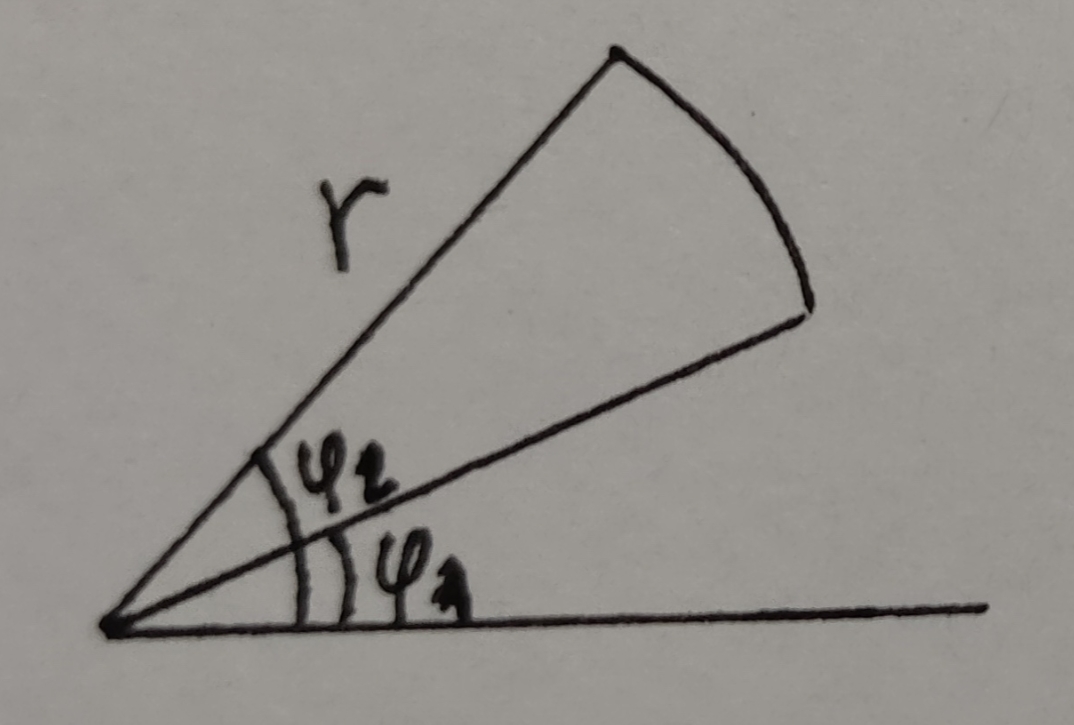 r
φ2
φ1